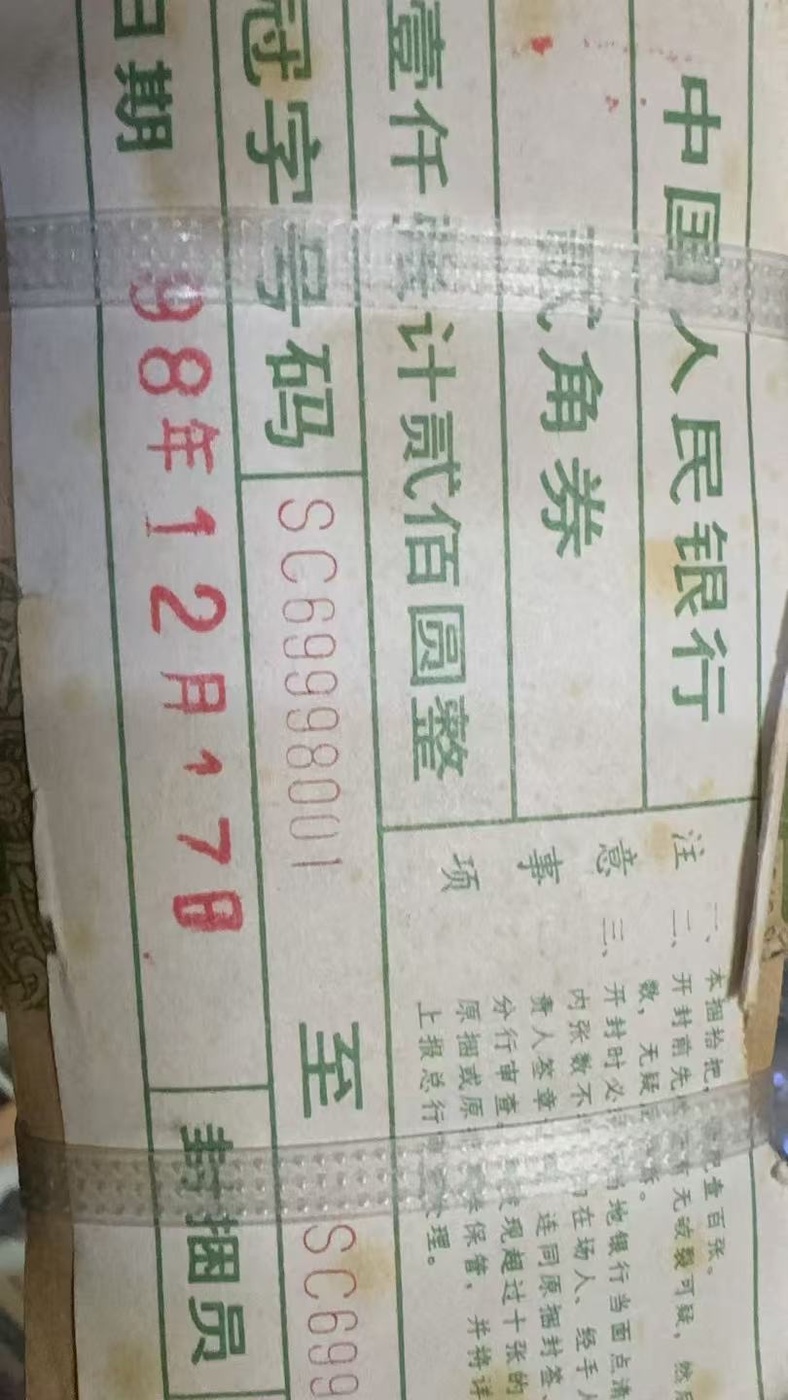 中国人民银行
贰角券
壹仟张计贰佰圆整
冠字号码 SC69998001 至 SC699
日期 98年12月17日 封捆员
注意事项
一、本捆拾把，每把壹百张。
二、开封前先 无破裂可疑，然
数，无疑
三、开封时必 地银行当面点清
内张数不 在场人、经手人
责人签章 连同原捆封签
分行审查 发现超过十张的
原捆或原 保管，并将详
上报总行 处理。